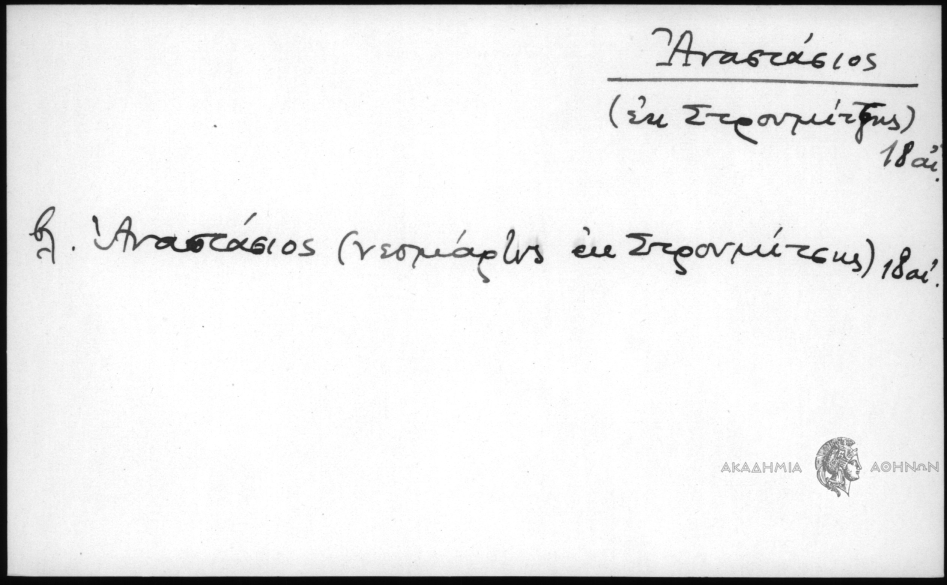 Ἀναστάσιος
(ἐκ Στρουμίτσης)
18 αἰ.
βλ. Ἀναστάσιος (νεομάρτυς ἐκ Στρουμίτσης) 18 αἰ.
ΑΚΑΔΗΜΙΑ ΑΘΗΝΩΝ